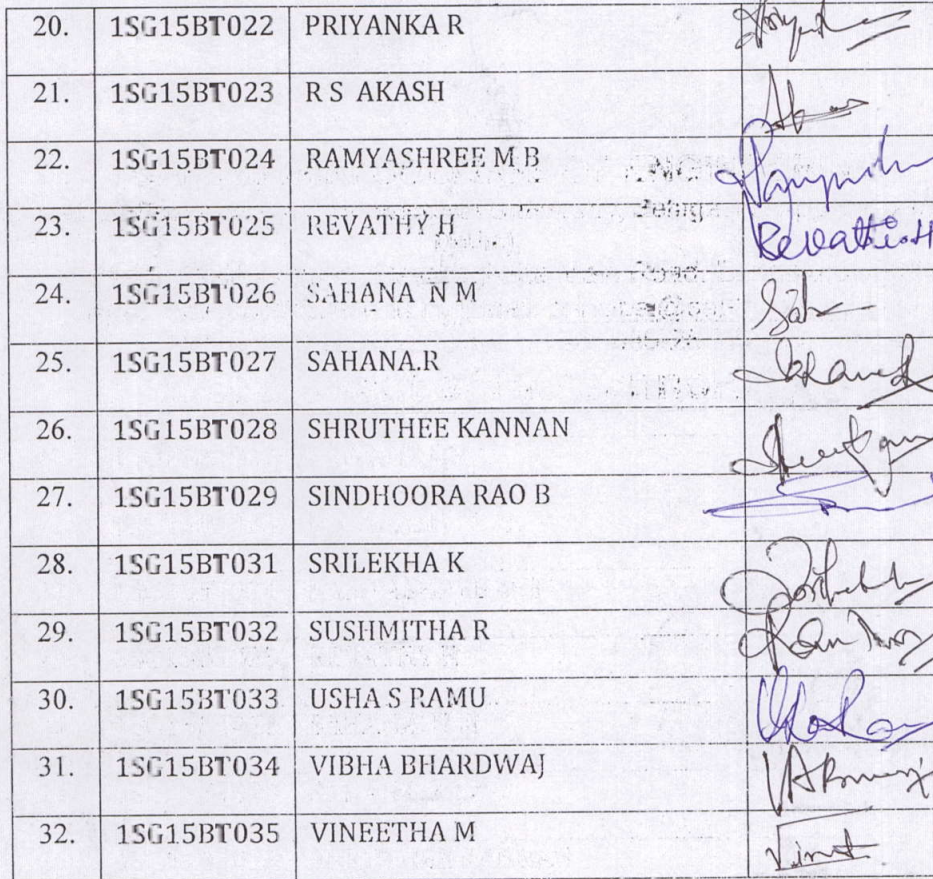 20. 1SG15BT022 PRIYANKA R
21. 1SG15BT023 R S AKASH
22. 1SG15BT024 RAMYASHREE M B
23. 1SG15BT025 REVATHY H Revathi.H
24. 1SG15BT026 SAHANA N M
25. 1SG15BT027 SAHANA.R
26. 1SG15BT028 SHRUTHEE KANNAN
27. 1SG15BT029 SINDHOORA RAO B
28. 1SG15BT031 SRILEKHA K
29. 1SG15BT032 SUSHMITHA R
30. 1SG15BT033 USHA S RAMU
31. 1SG15BT034 VIBHA BHARDWAJ
32. 1SG15BT035 VINEETHA M